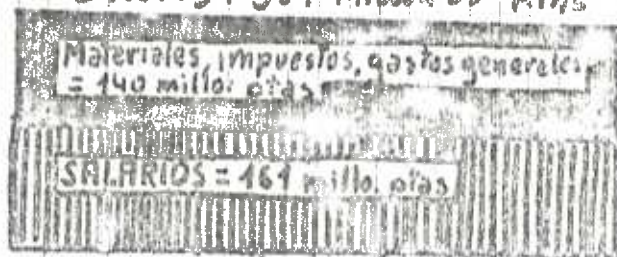 Materiales, impuestos, gastos generales.
= 140 millo. ptas
SALARIOS = 161 millo. ptas